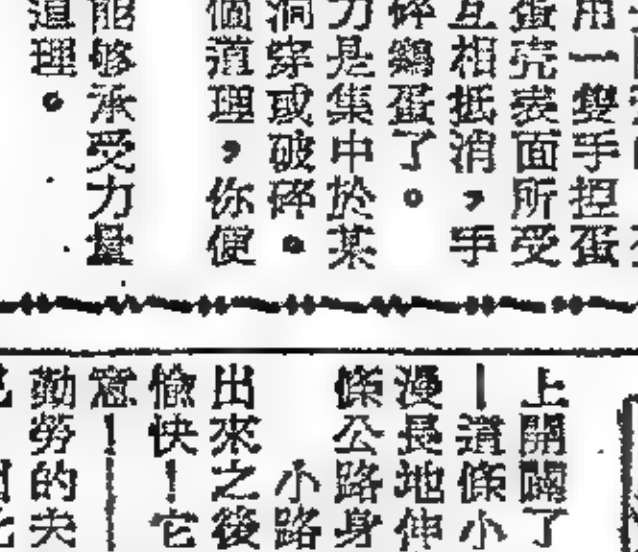 用一雙手捏蛋
蛋壳表面所受
互相抵消，手
碎鷄蛋了。
力是集中於某
洞穿或破碎。
個道理，你便
能够承受力量
道理。
上開闢了
｜這條小
漫長地伸
條公路身
小路
出來之後
愉快！它
意！｜
勤勞的夫